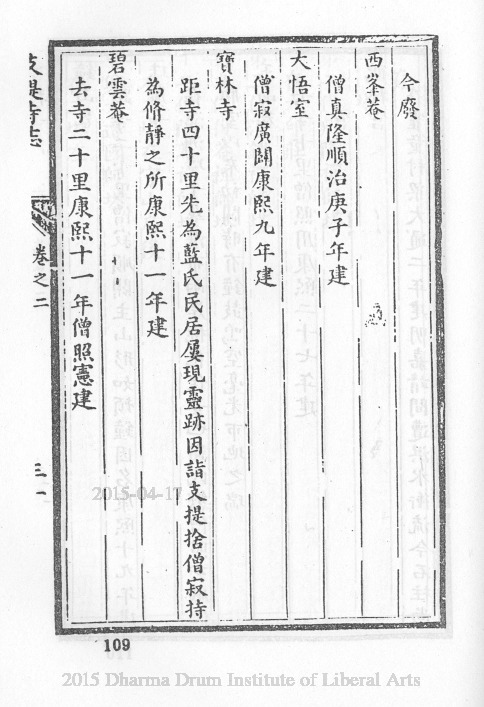 今廢
西峯菴
僧真隆順治庚子年建
大悟室
僧寂廣闢康熙九年建
寶林寺
距寺四十里先為藍氏民居屢現靈跡因詣支提捨僧寂持
為脩靜之所康熙十一年建
碧雲菴
去寺二十里康熙十一年僧照憲建
支提寺志
卷之二
三一
109
2015-04-17
2015 Dharma Drum Institute of Liberal Arts